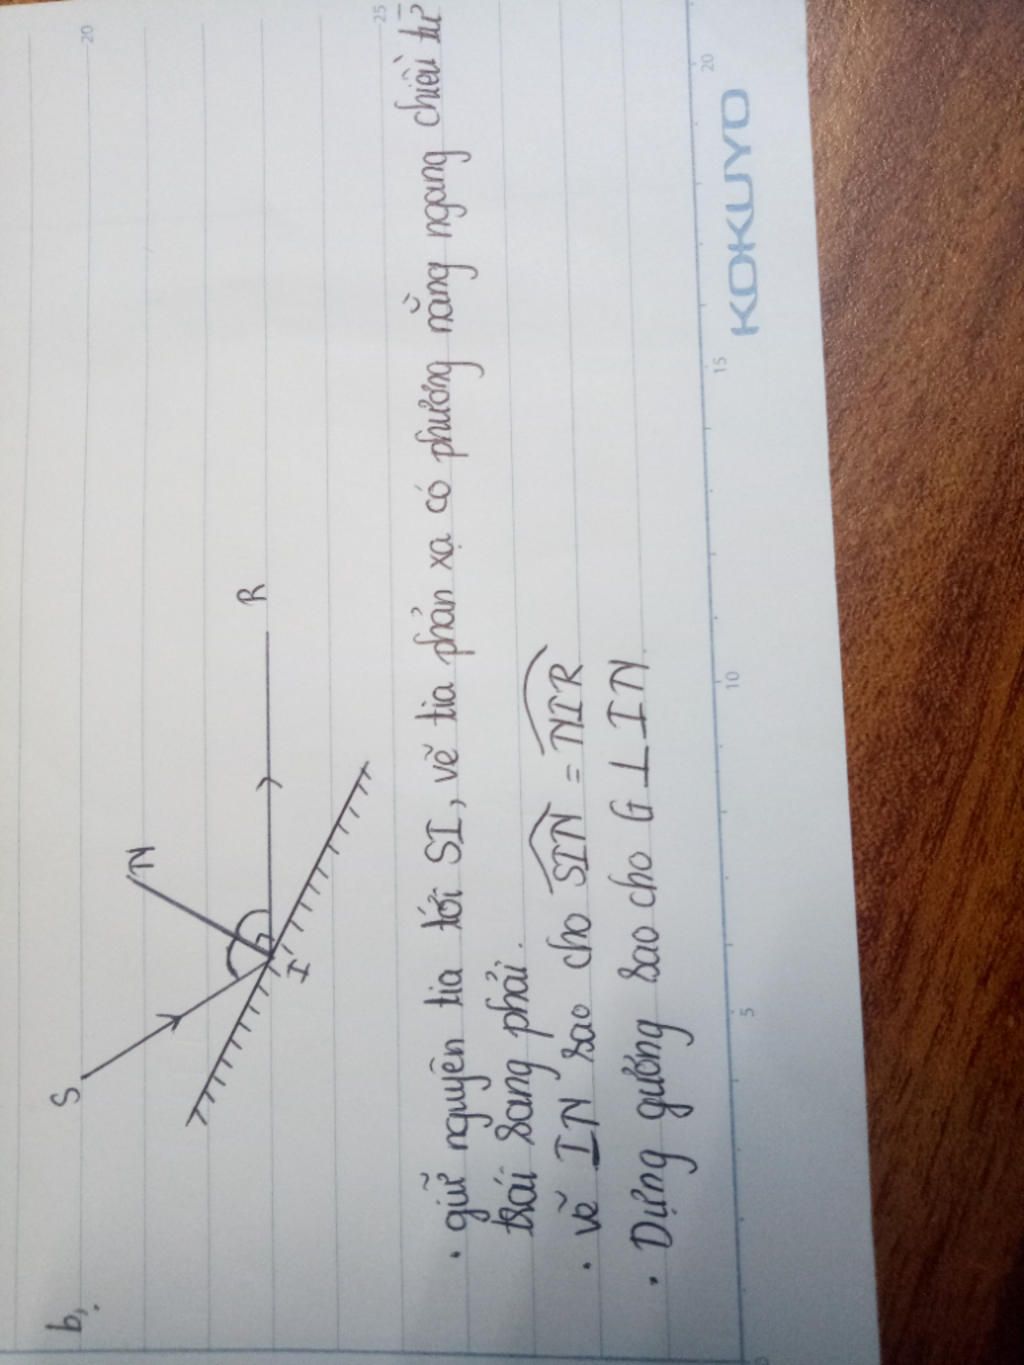 b,.
S
N
I
R
• giữ nguyên tia tới SI, vẽ tia phản xạ có phương nằm ngang chiều từ
trái sang phải.
• vẽ IN sao cho SIN = NIR
• Dựng gương sao cho G ⊥ IN.
5
10
15
20
KOKUYO
20
25